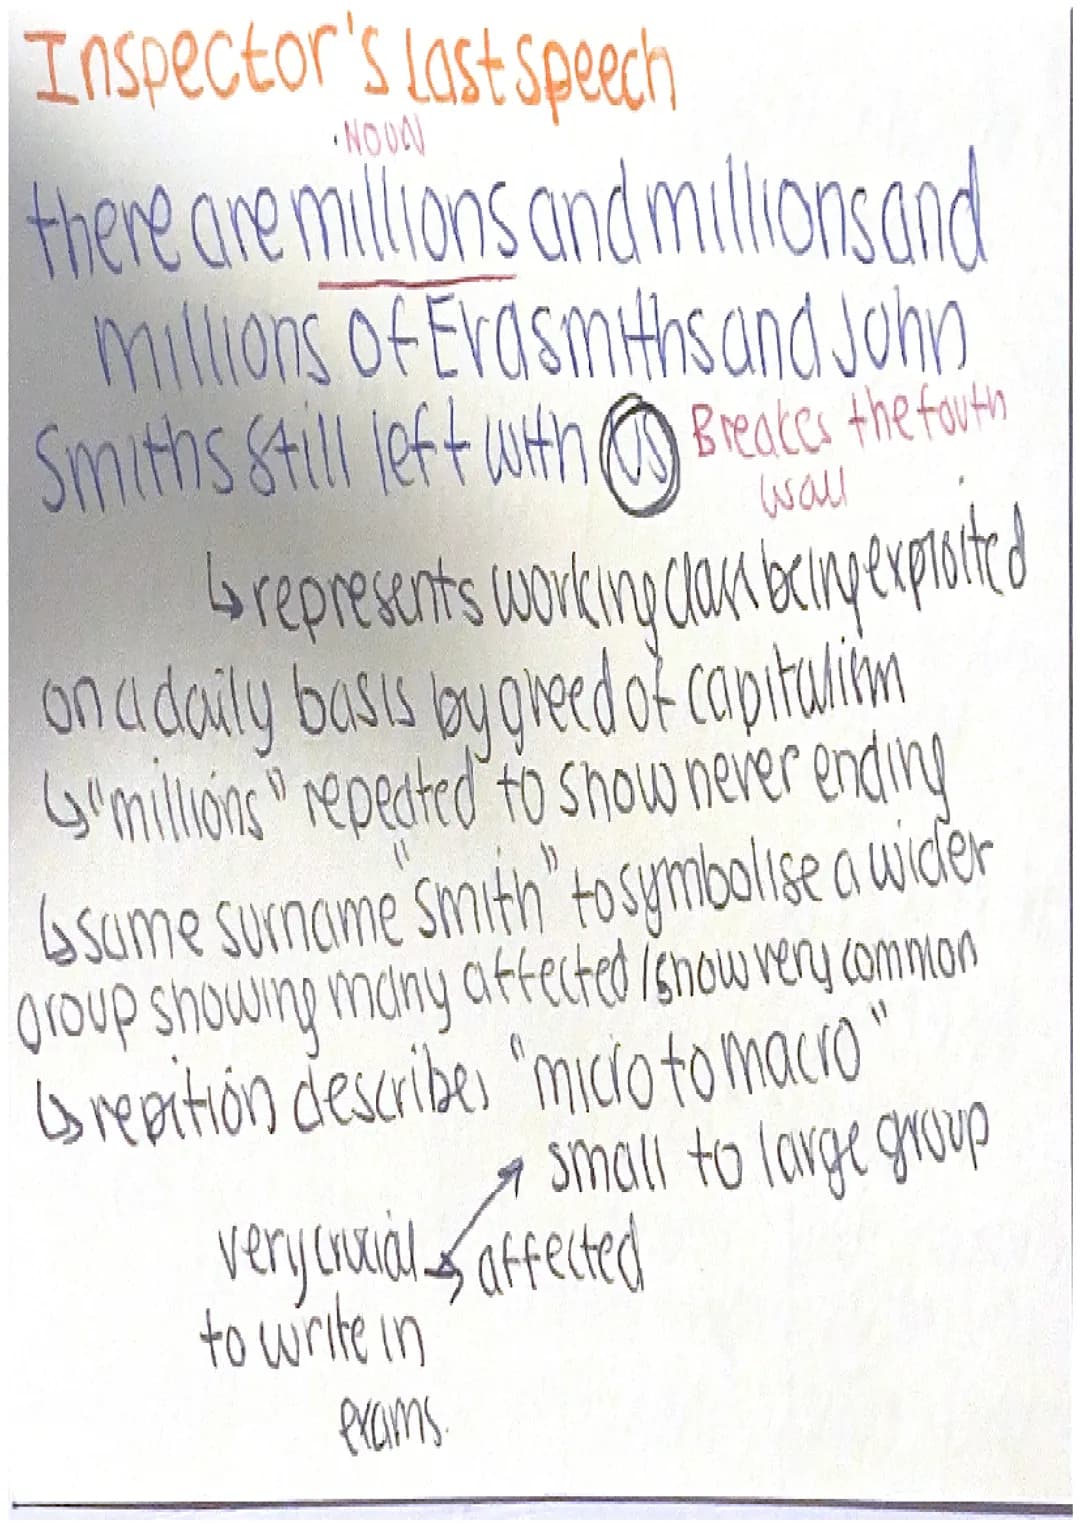 Inspector's last speech
·NOUN
there are millions and millions and
millions of Eva smiths and John
Smiths still left with US Breakes the fouth
wall
↳ represents working class being exploited
on a daily basis by greed of capitalism
↳ "millions" repeated to show never ending
↳ same surname "Smith" to symbolise a wider
group showing many affected / show very common
↳ repition describes "micro to macro"
small to large group
very crucial affected
to write in
exams.